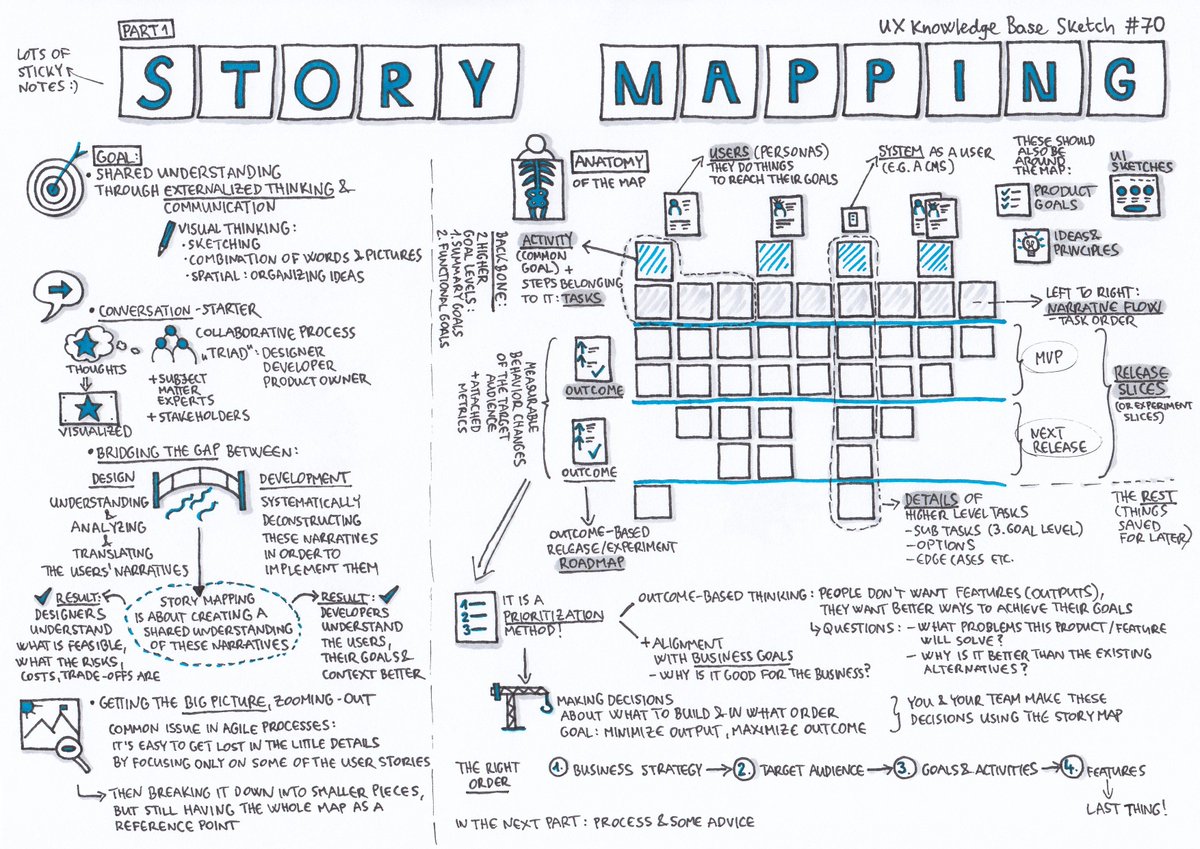 PART 1
UX Knowledge Base Sketch #70
LOTS OF
STICKY
NOTES:)
STORY MAPPING
GOAL:
• SHARED UNDERSTANDING
THROUGH EXTERNALIZED THINKING &
COMMUNICATION
VISUAL THINKING:
• SKETCHING
• COMBINATION OF WORDS & PICTURES
• SPATIAL: ORGANIZING IDEAS
• CONVERSATION-STARTER
THOUGHTS
VISUALIZED
COLLABORATIVE PROCESS
„TRIAD": DESIGNER
DEVELOPER
PRODUCT OWNER
+ SUBJECT
MATTER
EXPERTS
+ STAKEHOLDERS
• BRIDGING THE GAP BETWEEN:
DESIGN
UNDERSTANDING
&
ANALYZING
&
TRANSLATING
THE USERS' NARRATIVES
DEVELOPMENT
SYSTEMATICALLY
DECONSTRUCTING
THESE NARRATIVES
IN ORDER TO
IMPLEMENT THEM
STORY MAPPING
IS ABOUT CREATING A
SHARED UNDERSTANDING
OF THESE NARRATIVES
RESULT:
DESIGNERS
UNDERSTAND
WHAT IS FEASIBLE,
WHAT THE RISKS,
COSTS, TRADE-OFFS ARE
RESULT:
DEVELOPERS
UNDERSTAND
THE USERS,
THEIR GOALS &
CONTEXT BETTER
• GETTING THE BIG PICTURE, ZOOMING-OUT
COMMON ISSUE IN AGILE PROCESSES:
IT'S EASY TO GET LOST IN THE LITTLE DETAILS
BY FOCUSING ONLY ON SOME OF THE USER STORIES
THEN BREAKING IT DOWN INTO SMALLER PIECES,
BUT STILL HAVING THE WHOLE MAP AS A
REFERENCE POINT
ANATOMY
OF THE MAP
USERS (PERSONAS)
THEY DO THINGS
TO REACH THEIR GOALS
SYSTEM AS A USER
(E.G. A CMS)
THESE SHOULD
ALSO BE
AROUND
THE MAP:
PRODUCT
GOALS
UI
SKETCHES
IDEAS &
PRINCIPLES
BACKBONE:
2 HIGHER
GOAL LEVELS:
1. SUMMARY GOALS
2. FUNCTIONAL GOALS
ACTIVITY
(COMMON
GOAL) +
STEPS BELONGING
TO IT: TASKS
LEFT TO RIGHT:
NARRATIVE FLOW
- TASK ORDER
MEASURABLE
BEHAVIOR CHANGES
OF THE TARGET
AUDIENCE
+ ATTACHED
METRICS
OUTCOME
OUTCOME
OUTCOME-BASED
RELEASE/EXPERIMENT
ROADMAP
MVP
NEXT
RELEASE
RELEASE
SLICES
(OR EXPERIMENT
SLICES)
THE REST
(THINGS
SAVED
FOR LATER)
DETAILS OF
HIGHER LEVEL TASKS
- SUB TASKS (3. GOAL LEVEL)
- OPTIONS
- EDGE CASES ETC.
1
2
3
IT IS A
PRIORITIZATION
METHOD!
OUTCOME-BASED THINKING: PEOPLE DON'T WANT FEATURES (OUTPUTS),
THEY WANT BETTER WAYS TO ACHIEVE THEIR GOALS
QUESTIONS: - WHAT PROBLEMS THIS PRODUCT/FEATURE
WILL SOLVE?
- WHY IS IT BETTER THAN THE EXISTING
ALTERNATIVES?
+ ALIGNMENT
WITH BUSINESS GOALS
- WHY IS IT GOOD FOR THE BUSINESS?
MAKING DECISIONS
ABOUT WHAT TO BUILD & IN WHAT ORDER
GOAL: MINIMIZE OUTPUT, MAXIMIZE OUTCOME
YOU & YOUR TEAM MAKE THESE
DECISIONS USING THE STORY MAP
THE RIGHT
ORDER
1. BUSINESS STRATEGY → 2. TARGET AUDIENCE → 3. GOALS & ACTIVITIES → 4. FEATURES
LAST THING!
IN THE NEXT PART: PROCESS & SOME ADVICE